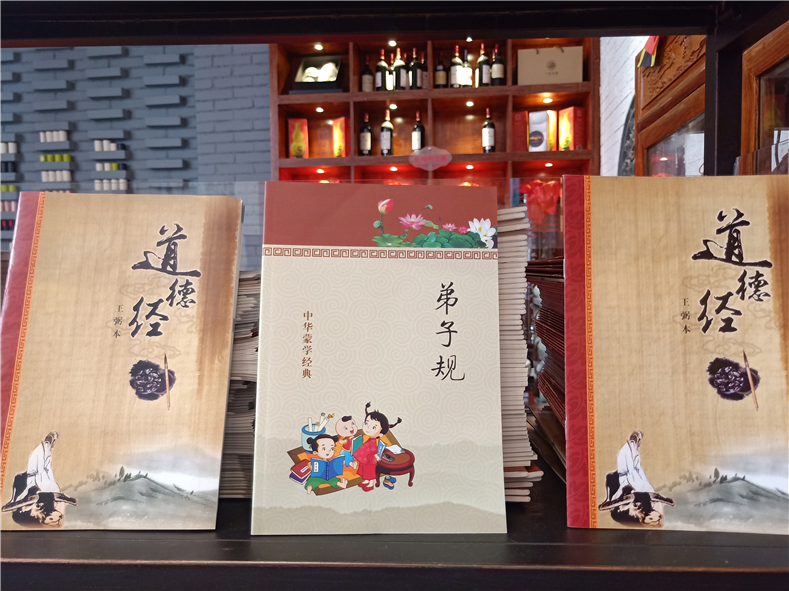 道德经
王弼本
中华蒙学经典
弟子规
道德经
王弼本